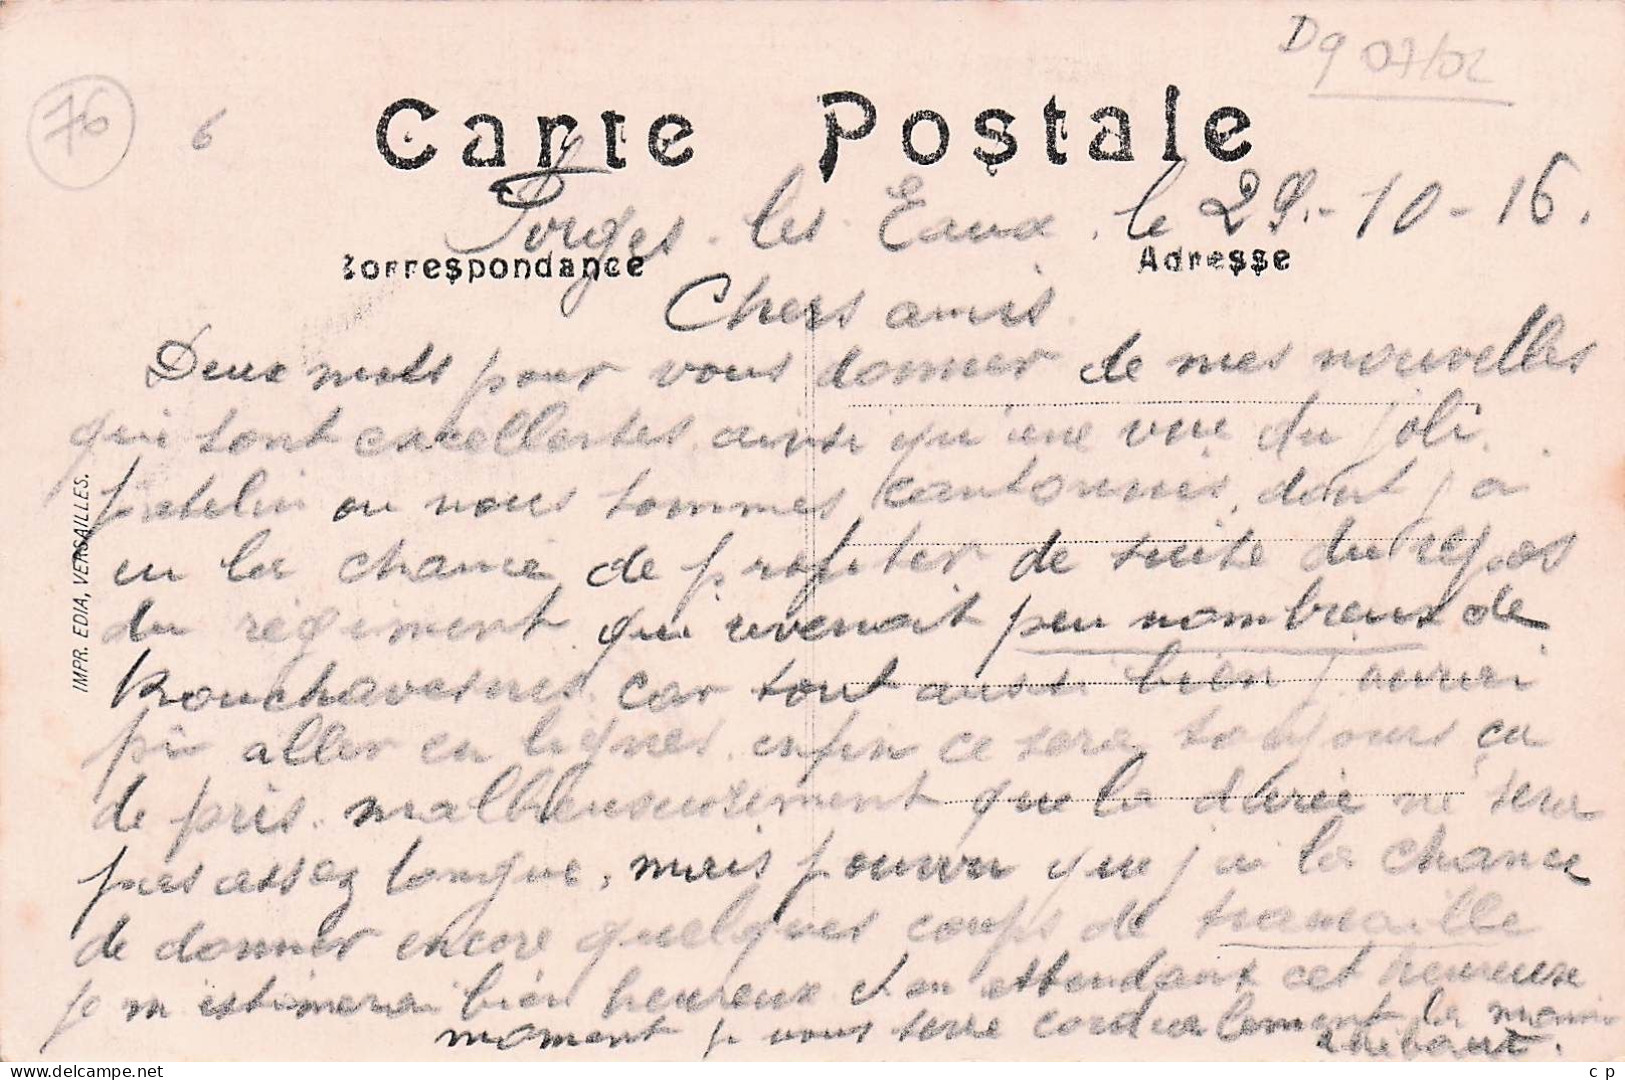 Dq 07/02
76
6
Carte Postale
Forges-les-Eaux, le 29-10-16.
Correspondance
Adresse
Chers amis.
Deux mots pour vous donner de mes nouvelles
qui sont excellentes ainsi qu'une vue du joli
patelin ou nous sommes cantonnés, dont j'ai
eu la chance de profiter de suite du repos
du régiment qui revenait peu nombreux de
Bouchavesnes car tout aussi bien j'aurai
pu aller en lignes, enfin ce sera toujours ça
de pris malheureusement que la durée ne sera
pas assez longue, mais pourvu que j'ai la chance
de donner encore quelques coups de
je m'estimerai bien heureux et en attendant cet heureuse
moment je vous serre cordialement la main
IMPR. EDIA, VERSAILLES.
delcampe.net
c p